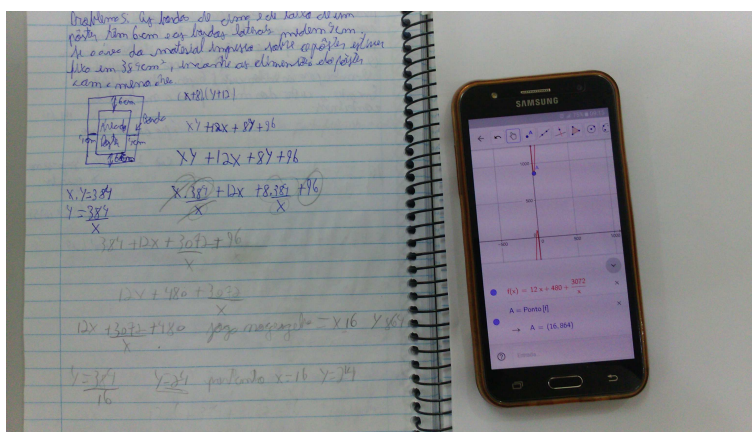 Problema 5: As bordas de cima e de baixo de um
pôster têm 6cm e as bordas laterais medem 4cm.
Se a área do material impresso sobre o pôster estiver
fixo em 384cm², encontre as dimensões do pôster
com menor área
6cm
Borda
Área do
Poster
4cm
4cm
6cm
(x+8)(y+12)
xy+12x+8y+96
xy+12x+8y+96
x.y=384
y=384
x
x.384+12x+8.384+96
x x
384+12x+3072+96
x
12x+480+3072
x
12x+3072+480 jogo no geogebra = x16 y864
x
y=384 y=24 portanto x=16 y=24
16
SAMSUNG
1000
-500
0
500
1000
f(x) = 12 x + 480 + 3072
x
A = Ponto(f)
→ A = (16, 864)